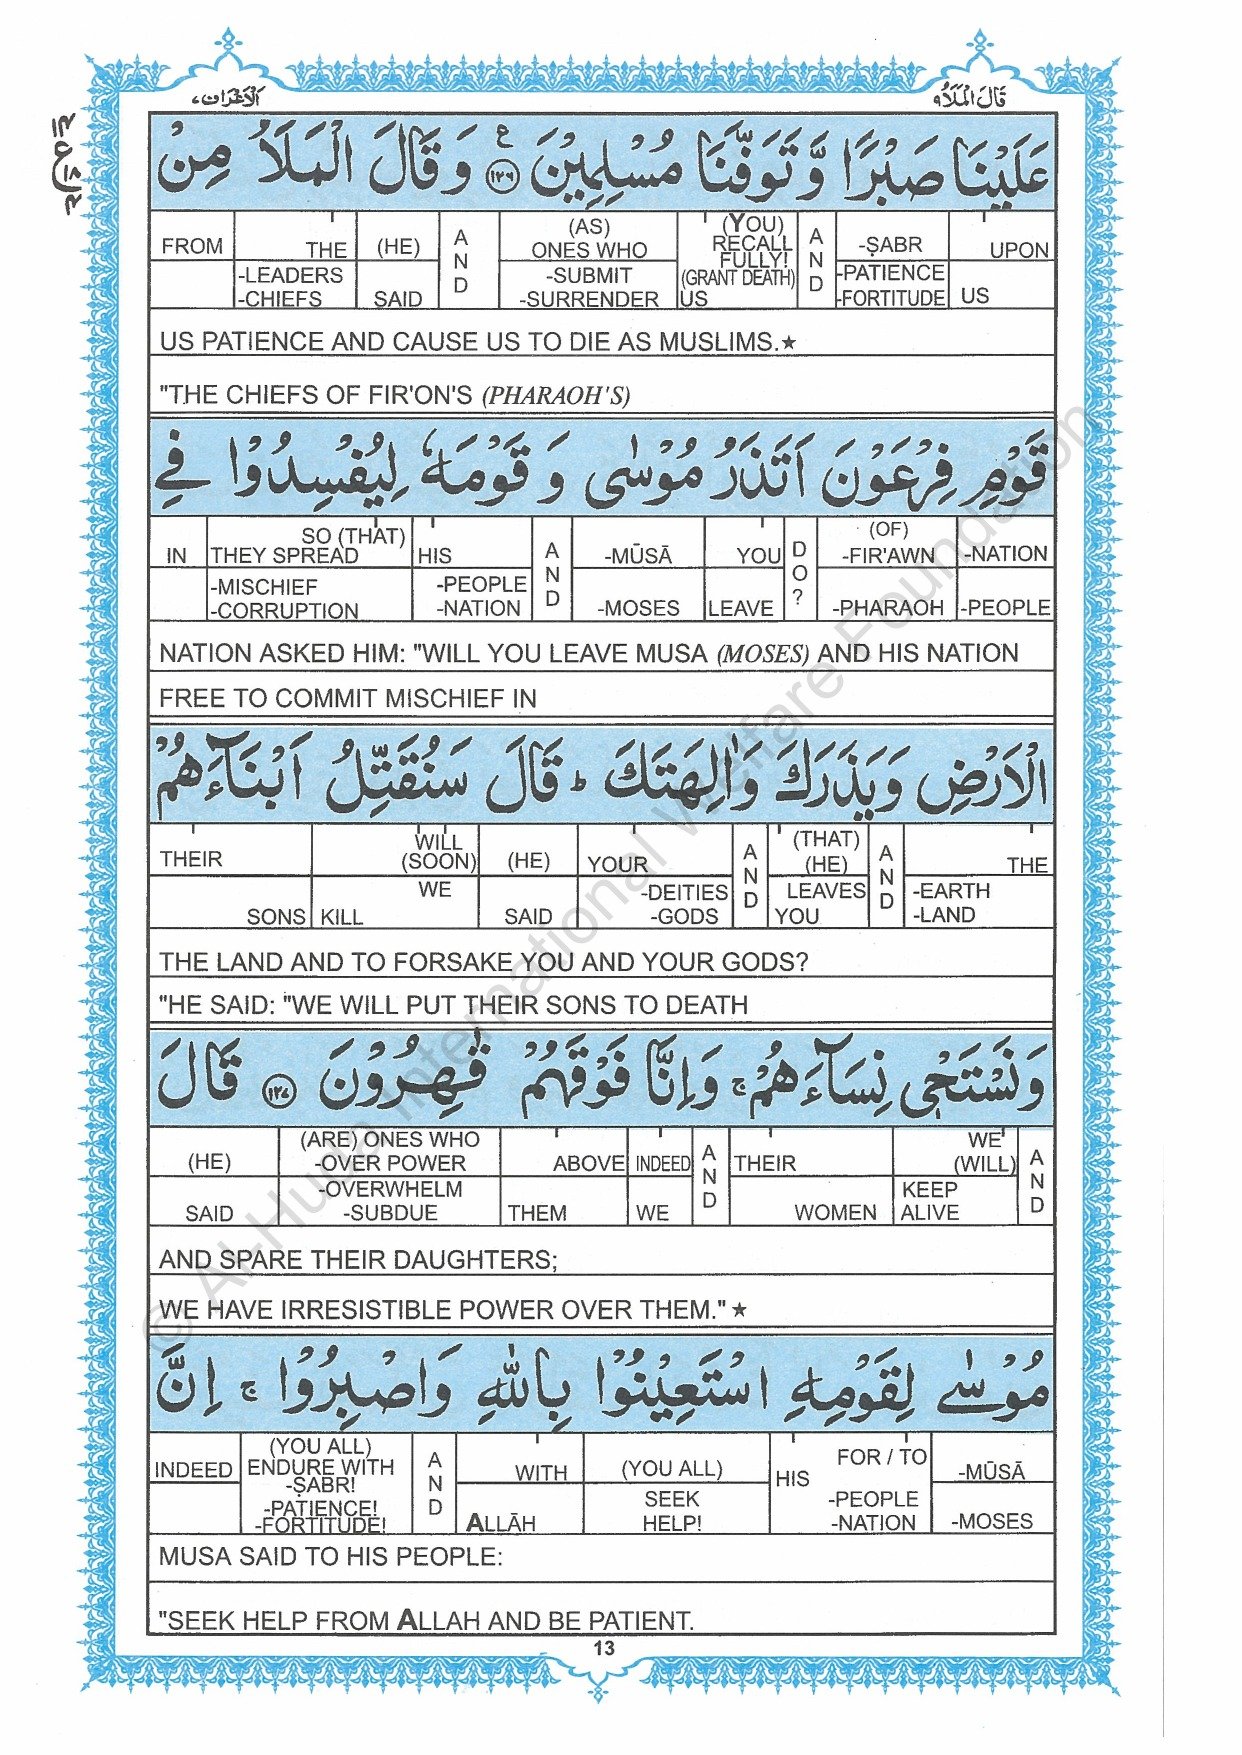 قَالَ الْمَلَأُ ٩
الْأَعْرَاف ٧
عَلَيْنَا صَبْرًا وَّ تَوَفَّنَا مُسْلِمِيْنَ ﴿١٢٦﴾ ع وَ قَالَ الْمَلَاُ مِنْ
FROM THE (HE) AND (AS) ONES WHO (YOU) RECALL FULLY! (GRANT DEATH) AND -ṢABR UPON
-LEADERS -CHIEFS SAID -SUBMIT -SURRENDER US -PATIENCE -FORTITUDE US
US PATIENCE AND CAUSE US TO DIE AS MUSLIMS.★
"THE CHIEFS OF FIR'ON'S (PHARAOH'S)
قَوْمِ فِرْعَوْنَ اَتَذَرُ مُوْسٰى وَ قَوْمَهٗ لِيُفْسِدُوْا فِي
IN SO (THAT) THEY SPREAD HIS AND -MŪSĀ YOU DO? (OF) -FIR'AWN -NATION
-MISCHIEF -CORRUPTION -PEOPLE -NATION -MOSES LEAVE -PHARAOH -PEOPLE
NATION ASKED HIM: "WILL YOU LEAVE MUSA (MOSES) AND HIS NATION
FREE TO COMMIT MISCHIEF IN
الْاَرْضِ وَ يَذَرَكَ وَ اٰلِهَتَكَ ؕ قَالَ سَنُقَتِّلُ اَبْنَآءَهُمْ
THEIR WILL (SOON) (HE) YOUR AND (THAT) (HE) AND THE
SONS KILL WE SAID -DEITIES -GODS LEAVES YOU -EARTH -LAND
THE LAND AND TO FORSAKE YOU AND YOUR GODS?
"HE SAID: "WE WILL PUT THEIR SONS TO DEATH
وَ نَسْتَحْيٖ نِسَآءَهُمْ ۚ وَ اِنَّا فَوْقَهُمْ قٰهِرُوْنَ ﴿١٢٧﴾ قَالَ
(HE) (ARE) ONES WHO -OVER POWER ABOVE INDEED AND THEIR WE (WILL) AND
SAID -OVERWHELM -SUBDUE THEM WE WOMEN KEEP ALIVE
AND SPARE THEIR DAUGHTERS;
WE HAVE IRRESISTIBLE POWER OVER THEM." ★
مُوْسٰى لِقَوْمِهِ اسْتَعِيْنُوْا بِاللّٰهِ وَ اصْبِرُوْا ۚ اِنَّ
INDEED (YOU ALL) ENDURE WITH -ṢABR! AND WITH (YOU ALL) HIS FOR / TO -MŪSĀ
-PATIENCE! -FORTITUDE! ALLĀH SEEK HELP! -PEOPLE -NATION -MOSES
MUSA SAID TO HIS PEOPLE:
"SEEK HELP FROM ALLAH AND BE PATIENT.
13
© Al-Huda International Welfare Foundation